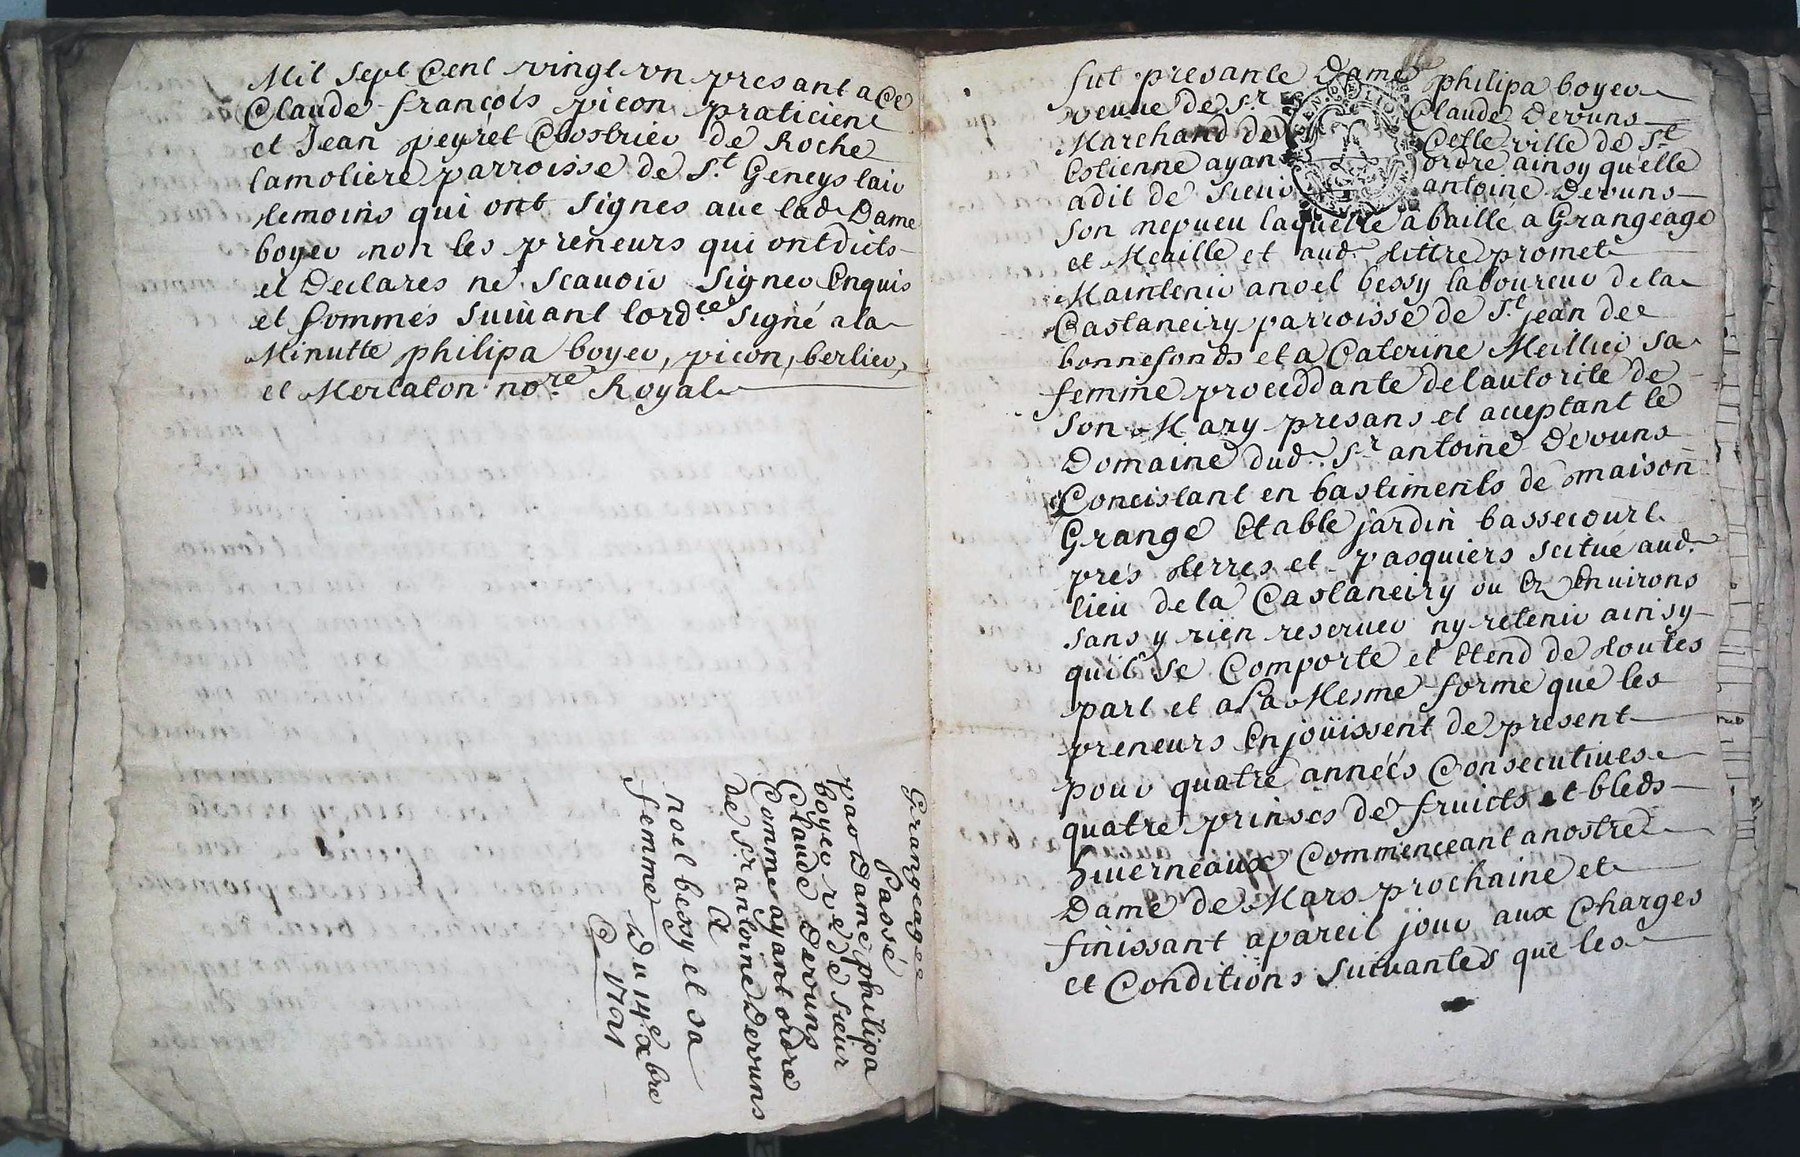 Mil sept Cent vingt vn presant a Ce
Claude françois picon praticient
et Jean peyret Clostrier de Roche
lamoliere parroisse de St. Geneys lair
temoins qui ont signes auec lade Dame
boyer non les preneurs qui ont dicts
et Declares ne scauoir signer Enquis
et sommés suiuant lordce signé a la
Minutte philipa boyer, picon, berlier,
et Mertaton nore Royal
Grangeage
Passé
par Dame philipa
boyer ve de sieur
Claude Deruins
Comme ayant ordre
de Sr. antoine Deruns
A
noel bessy et sa
femme
Du 14e xbre
1721
fut presante Dame philipa boyer
veuue de Sr. Claude Deruns
Marchand de Cette ville de St
Estienne ayant ordre ainsy quelle
a dit de sieur antoine Deruns
son nepueu laquelle a baille a Grangeage
et Meaille et aud. tittre promet
Maintenir a noel bessy laboureur de la
Castaneiry parroisse de St. jean de
bonnefonds et a Caterine Meillier sa
femme proceddante de lautorite de
son Mary presans et aceptant le
Domaine dud. Sr. antoine Deruns
Concistant en bastiments de maison
Grange Etable jardin bassecourt
prés terres et pasquiers scitué aud.
lieu de la Castaneiry ou Ez Enuirons
sans y rien reseruer ny retenir ainsy
quil se Comporte et Etend de toutes
part et a la Mesme forme que les
preneurs Enjoüissent de present
pour quatre années Consecutiues
quatre prinses de fruicts et bleds
hiuerneaux Commenceant a nostre
Dame de Mars prochaine et
finissant a pareil jour aux Charges
et Conditions suiuantes que les